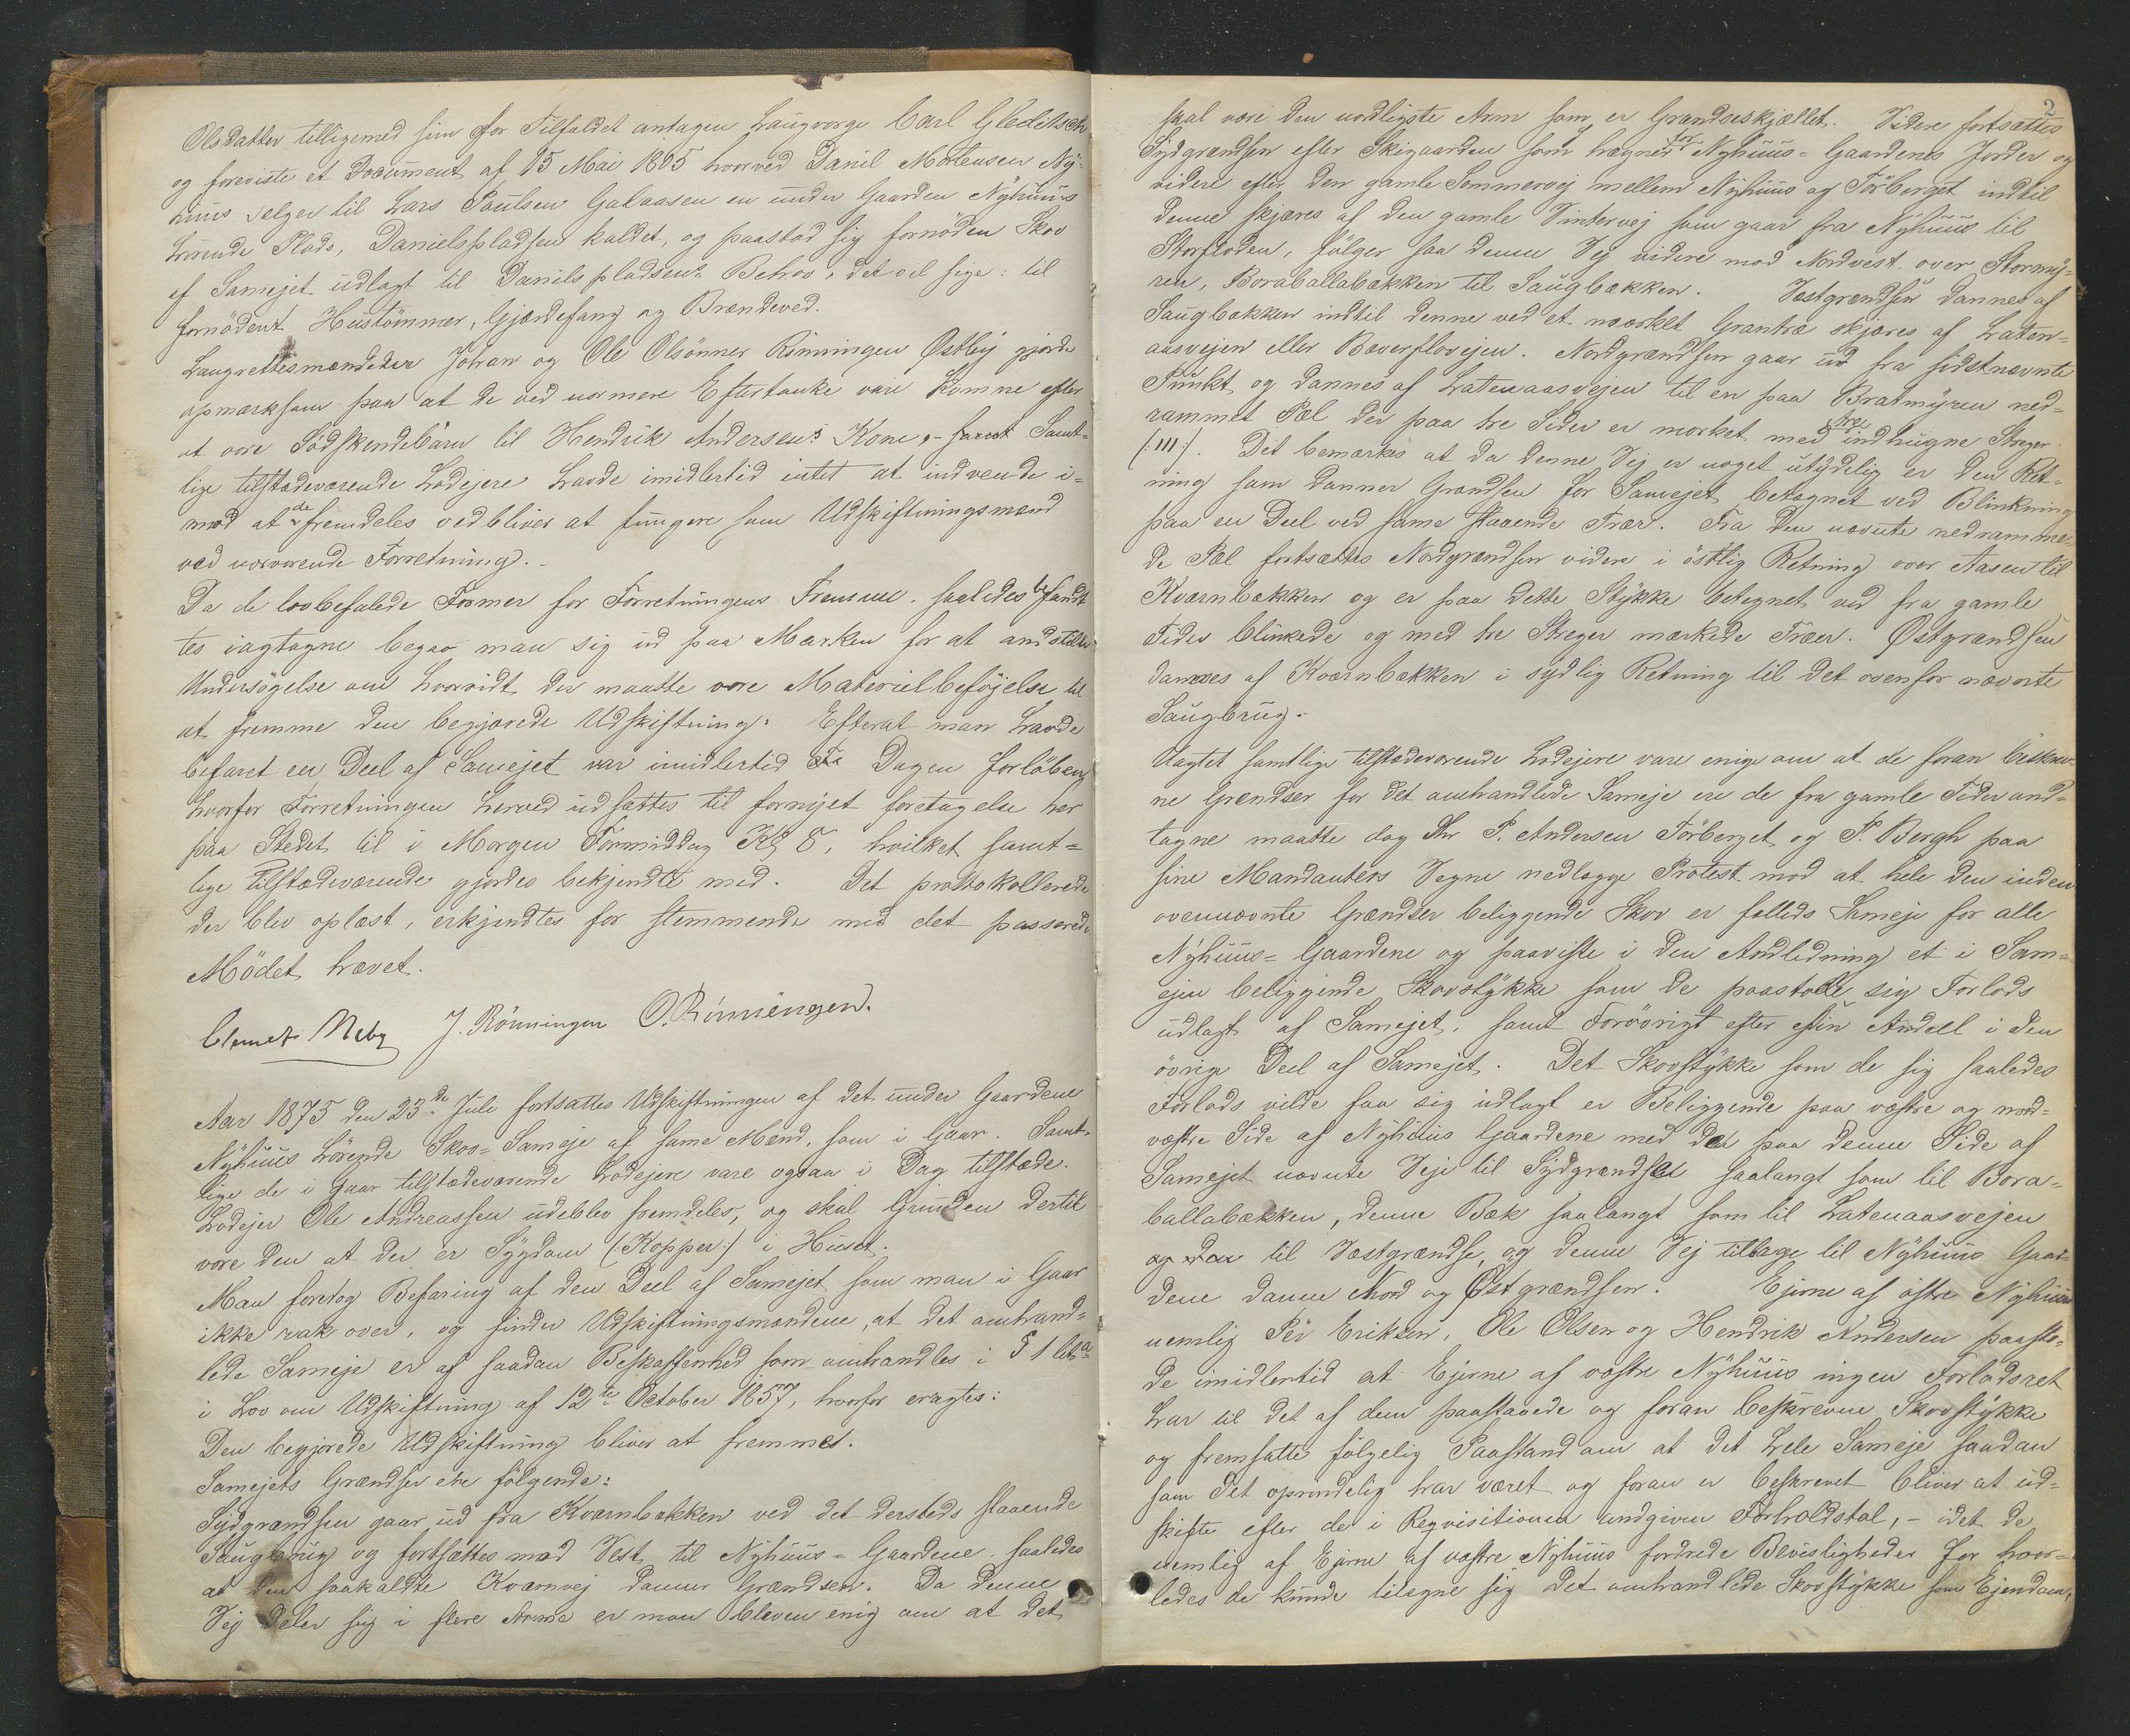 Olsdatter tilligemed sin for Tilfaldet antagen Laugvorge Carl Gleditsch
og foreviste et Document af 15 Mai 1865 hvorved Daniel Mortensen Ny-
huus selger til Lars Poulsen Galaasen en under Gaarden Nyhuus
hørende Plads, Danielspladsen kaldet, og paastod sig fornöden Skov
af Samejet udlagt til Danielspladsens Behov, det vil sige: til
fornödent Hustömmer, Gjærdefang og Brændeved.
Laugrettesmændene Johan og Ole Olsönner Rönningen Østby gjorde
opmærksom paa at de ved nærmere Eftertanke vare komne efter
at være Södskendebörn til Hendrik Andersens Kone, - Samt-
lige tilstædeværende Lodejere havde imidlertid intet at indvende i-
mod at de fremdeles vedbliver at fungere som Udskiftningsmænd
ved nærværende Forretning. -
Da de lovbefalede Former for Forretningens Fremme saaledes befandt
tes iagtagne begav man sig ud paa Marken for at anstille
Undersögelse om hvorvidt der maatte være Materiel beföjelse til
at fremme den begjærede Udskiftning: Efterat man havde
befaret en Deel af Samejet var imidlertid Dagen forlöben
hvorfor Forretningen herved udsættes til fornyet foretagelse her
paa Stedet til i Morgen Formiddag Kl 8, hvilket samt=
lige tilstædeværende gjordes bekjendte med. Det prottokollerede
der blev oplæst, erkjendtes for stemmende med det passerede
Mödet hævet.
Clemet Neby J. Rönningen O. Rönningen.
Aar 1875 den 23de Juli fortsattes Udskiftningen af det under Gaardene
Nyhuus hörende Skov= Sameje af same Mænd, som i Gaar. Samt-
lige de i Gaar tilstædeværende Lodejere vare ogsaa i Dag tilstæde.
Lodejer Ole Andreassen udeblev fremdeles, og skal Grunden dertil
være den at der er Sygdom (:Kopper:) i Huset.
Man foretog Befaring af den Deel af Samejet som man i Gaar
ikke rak over, og finder Udskiftningsmændene, at det omhand=
lede Sameje er af saadan Beskaffenhed som omhandles i § 1 litr a
i Lov om Udskiftning af 12te October 1857, hvorfor eragtes:
Den begjærede Udskiftning bliver at fremmes.
Samejets Grændser ere fölgende:
Sydgrændsen gaar ud fra Kværnbækken ved det dersteds staaende
Saugbrug og fortsættes mod Vest til Nyhuus= Gaardene saaledes
at den saakaldte Kværnvej danner Grændsen. Da denne
Vej deler sig i flere Arme er man bleven enig om at det
2
skal være den nordligste Arm som er Grændseskjællet. Videre fortsættes
Sydgrændsen efter Skigaarden som hægner for Nyhuus= Gaardenes Jorder og
videre efter den gamle Sommervej mellem Nyhuus og Förberget indtil
denne skjæres af den gamle Vintervej som gaar fra Nyhuus til
Storfloden, fölger saa denne Vej videre mod Nordvest over Stormy=
ren, Boraballabækken til Saugbækken. Vestgrændsen dannes af
Saugbækken indtil denne ved et mærket Grantræ skjæres af Laten=
aasvejen eller Bæverflovejen. Nordgrændsen gaar ud fra sidstnævnte
Punkt og dannes af Latenaasvejen til en paa Bratmyren ned=
rammet Pæl der paa tre Sider er mærket med tre indhugne Streger
(:III:). Det bemærkes at da denne Vej er noget utydelig er den Ret=
ning som danner Grændsen for Samejet betegnet ved Blinkning
paa en Deel ved same staaende Trær. Fra den nævnte nedramme
de Pæl fortsættes Nordgrændsen videre i östlig Retning over Aasen til
Kværnbækken og er paa dette Stykke betegnet ved fra gamle
Tider blinkede og med tre Streger mærkede Træer. Østgrændsen
dannes af Kværnbækken i sydlig Retning til det ovenfor nævnte
Saugbrug.
Uagtet samtlige tilstædeværende Lodejere vare enige om at de foran beskrev-
ne Grændser for det omhandlede Sameje ere de fra gamle Tider and=
tagne maatte dog Hr P. Andersen Förberget og P. Bergh paa
sine Mandanters Vegne nedlægge Protest mod at hele den inden
ovennævnte Grændser beliggende Skov er fælleds Sameje for alle
Nyhuus= Gaardene og paaviste i den Andledning et i Sam=
ejen beliggende Skovstykke som de paastode sig Forlods
udlagt af Samejet, samt Forövrigt efter sin Andeel i den
övrige Deel af Samejet. Det Skovstykke som de sig saaledes
Forlods vilde faa sig udlagt er Beliggende paa væstre og nord=
væstre Side af Nyhuus Gaardene med den paa denne Side af
Samejet nævnte Veje til Sydgrændse saalangt som til Bora=
ballabækken, denne Bæk saalangt som til Latenaasvejen
til Væstgrændse, og denne Vej tilbage til Nyhuus Gaar=
dene danne Nord og Östgrændsen. Ejerne af östre Nyhuus
nemlig Per Eriksen, Ole Olsen og Hendrik Andersen paasto-
de imidlertid at Ejerne af væstre Nyhuus ingen Forlodsret
har til det af dem paastaaede og foran beskrevne Skovstykke
og fremsatte fölgelig Paastand om at det hele Sameje saadan
som Det oprindelig har været og foran er beskrevet bliver at ud=
skifte efter de i Reqvisitionen andgivne Forholdstal, - idet de
nemlig af Ejerne af væstre Nyhuus fordrede Bevisligheder for hvor=
ledes de kunde tilegne sig det omhandlede Skovstykke som Ejendom,